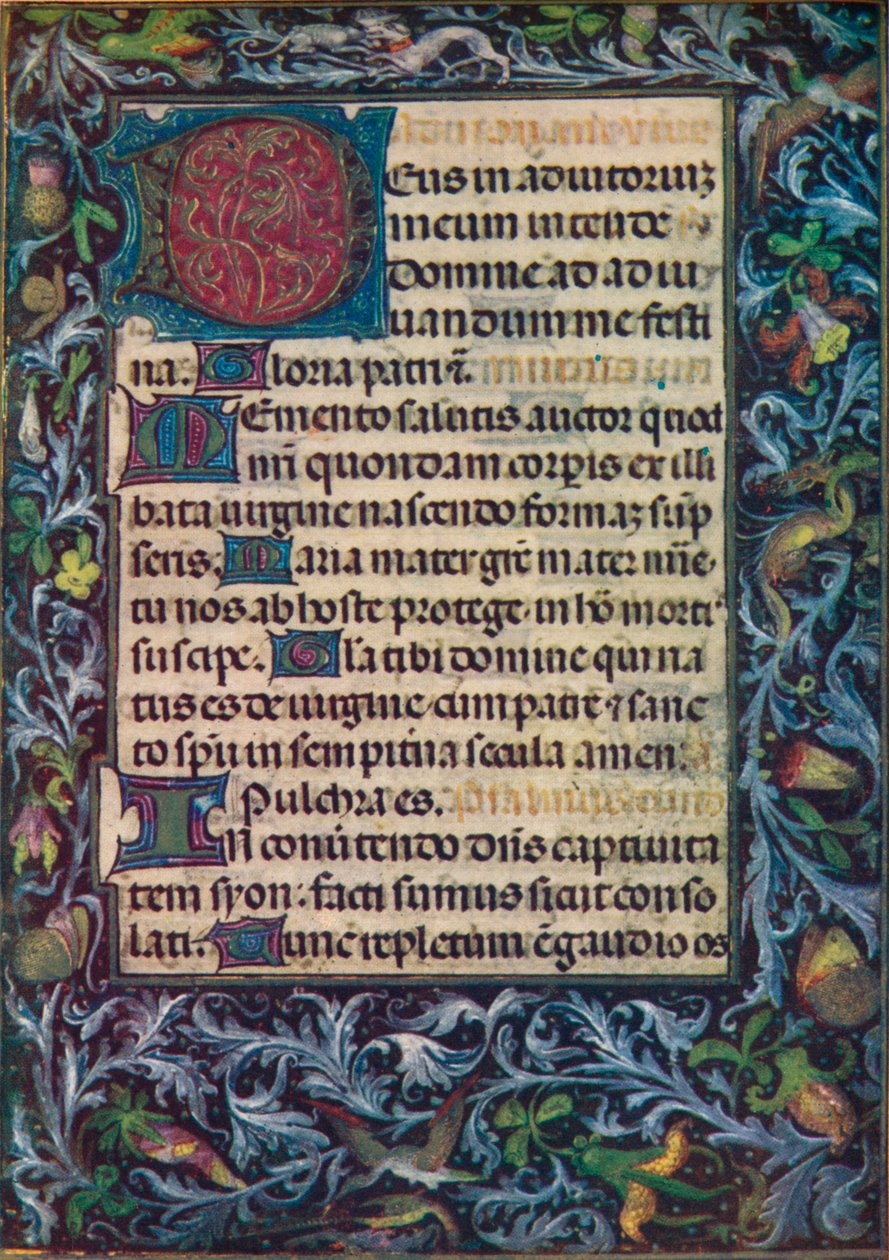 Deus in adiutoriuȝ
meum intende
Domine ad adiu
uandum me festi
na. Gloria patri ⁊̃.
Memento salutis auctor quod
nr̃i quondam corꝑis ex illi
bata uirgine nascendo formaȝ sūp
seris: Maria mater gr̃e mater mīe·
tu nos ab hoste protege·in hõ morti'
suscipe. Gl̃a tibi domine qui na
tus es de uirgine·cum patre·⁊ sanc
to sp̃u in sempit̃na secula amen:
Pulchra es.
In conũtendo dñs captiuita
tem syon: facti sumus sicut conso
lati. Tunc repletum ẽ gaudio os